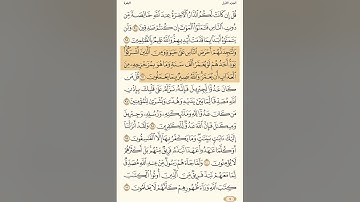 الجزء الأول البقرة
قُلْ إِن كَانَتْ لَكُمُ ٱلدَّارُ ٱلْأَخِرَةُ عِندَ ٱللَّهِ خَالِصَةً مِّن
دُونِ ٱلنَّاسِ فَتَمَنَّوُا۟ ٱلْمَوْتَ إِن كُنتُمْ صَٰدِقِينَ ٩٤ وَلَن
يَتَمَنَّوْهُ أَبَدًۢا بِمَا قَدَّمَتْ أَيْدِيهِمْ وَٱللَّهُ عَلِيمٌۢ بِٱلظَّٰلِمِينَ ٩٥
وَلَتَجِدَنَّهُمْ أَحْرَصَ ٱلنَّاسِ عَلَىٰ حَيَوٰةٍ وَمِنَ ٱلَّذِينَ أَشْرَكُوا۟
يَوَدُّ أَحَدُهُمْ لَوْ يُعَمَّرُ أَلْفَ سَنَةٍ وَمَا هُوَ بِمُزَحْزِحِهِۦ مِنَ
ٱلْعَذَابِ أَن يُعَمَّرَ وَٱللَّهُ بَصِيرٌۢ بِمَا يَعْمَلُونَ ٩٦ قُلْ مَن
كَانَ عَدُوًّا لِّجِبْرِيلَ فَإِنَّهُۥ نَزَّلَهُۥ عَلَىٰ قَلْبِكَ بِإِذْنِ
ٱللَّهِ مُصَدِّقًا لِّمَا بَيْنَ يَدَيْهِ وَهُدًى وَبُشْرَىٰ لِلْمُؤْمِنِينَ ٩٧
مَن كَانَ عَدُوًّا لِّلَّهِ وَمَلَٰٓئِكَتِهِۦ وَرُسُلِهِۦ وَجِبْرِيلَ
وَمِيكَىٰلَ فَإِنَّ ٱللَّهَ عَدُوٌّ لِّلْكَٰفِرِينَ ٩٨ وَلَقَدْ أَنزَلْنَآ
إِلَيْكَ ءَايَٰتٍۭ بَيِّنَٰتٍ وَمَا يَكْفُرُ بِهَآ إِلَّا ٱلْفَٰسِقُونَ ٩٩
أَوَكُلَّمَا عَٰهَدُوا۟ عَهْدًا نَّبَذَهُۥ فَرِيقٌ مِّنْهُم بَلْ أَكْثَرُهُمْ
لَا يُؤْمِنُونَ ١٠٠ وَلَمَّا جَآءَهُمْ رَسُولٌ مِّنْ عِندِ ٱللَّهِ مُصَدِّقٌ
لِّمَا مَعَهُمْ نَبَذَ فَرِيقٌ مِّنَ ٱلَّذِينَ أُوتُوا۟ ٱلْكِتَٰبَ
كِتَٰبَ ٱللَّهِ وَرَآءَ ظُهُورِهِمْ كَأَنَّهُمْ لَا يَعْلَمُونَ ١٠١